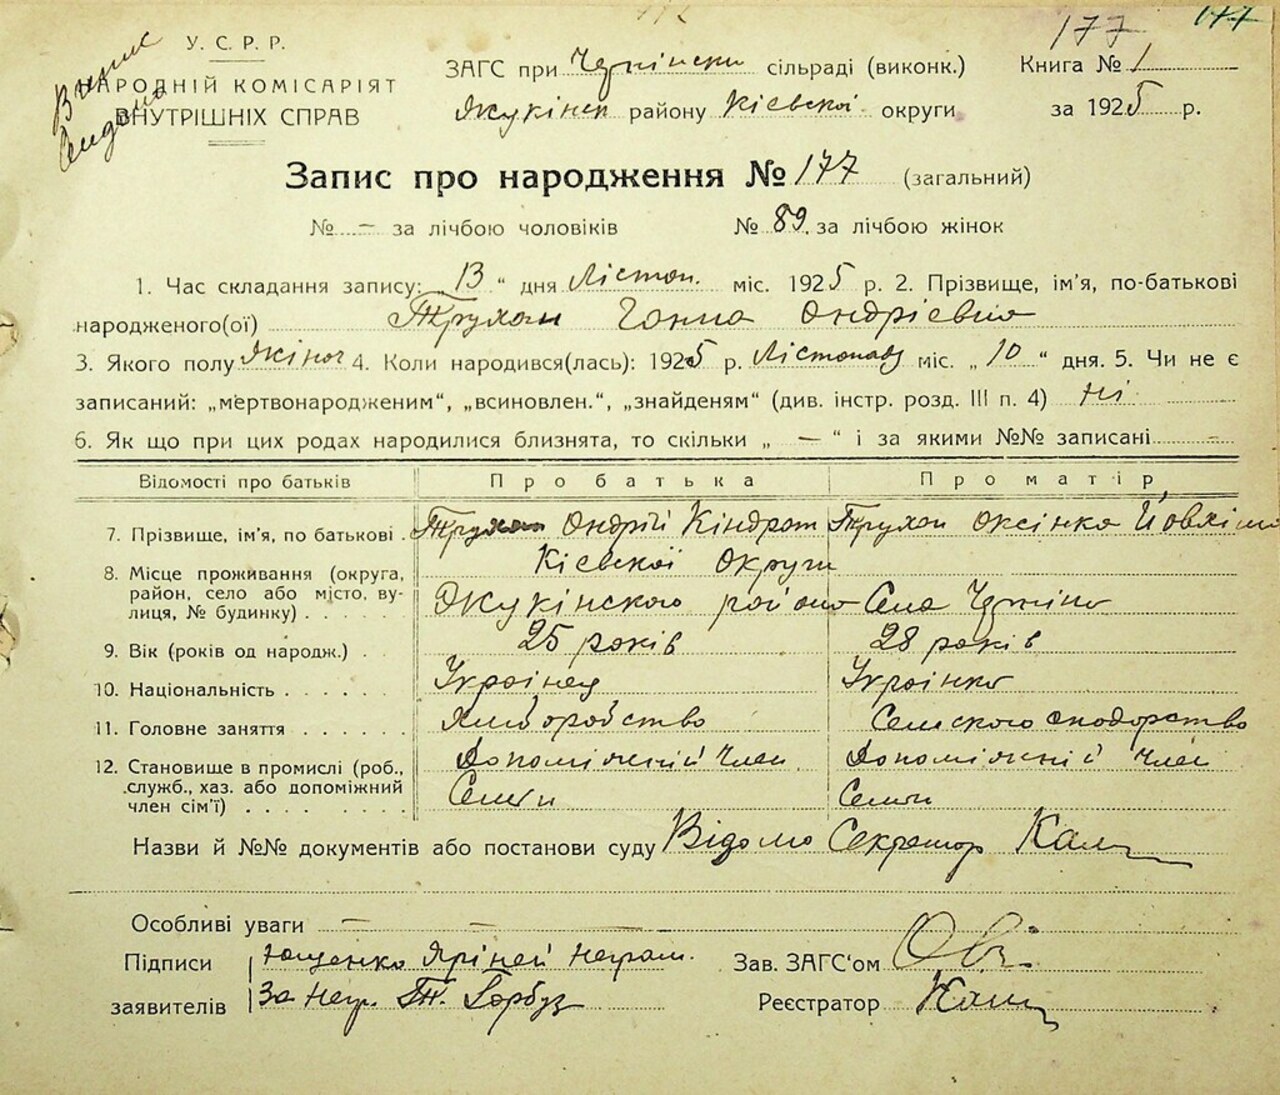 177
177
У. С. Р. Р.
НАРОДНІЙ КОМІСАРІЯТ
ВНУТРІШНІХ СПРАВ
ЗАГС при сільраді (виконк.) Книга № 1
району Кієвскоі округи за 1925 р.
Запис про народження № 177 (загальний)
№ — за лічбою чоловіків № 89 за лічбою жінок
1. Час складання запису: „ 13 “ дня Лістоп. міс. 1925 р. 2. Прізвище, ім'я, по-батькові
народженого(ої) Трухан Ганна Андрієвна
3. Якого полу жіноч 4. Коли народився(лась): 1925 р. Лістопад міс. „ 10 “ дня. 5. Чи не є
записаний: „мертвонародженим“, „всиновлен.“, „знайденям“ (див. інстр. розд. III п. 4) ні
6. Як що при цих родах народилися близнята, то скільки „ — “ і за якими №№ записані —
Відомості про батьків Про батька Про матір
7. Прізвище, ім'я, по батькові Трухан Андрій Кіндрат Трухан Оксінка
Кієвскоі Округи
8. Місце проживання (округа,
район, село або місто, ву-
лиця, № будинку) района Села
9. Вік (років од народж.) 25 років 28 років
10. Національність Украінец Украінка
11. Головне заняття Хліборобство
12. Становище в промислі (роб.,
служб., хаз. або допоміжний
член сім'ї)
Допоміжний член Допоміжній член
Семи Семи
Назви й №№ документів або постанови суду Відомо Секретар
Особливі уваги — —
Підписи Ющенко Яріней неграм.
заявителів За негр. Горбуз
Зав. ЗАГС'ом
Реєстратор